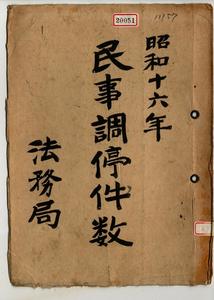 20051
昭和十六年
民事調停件数
法務局